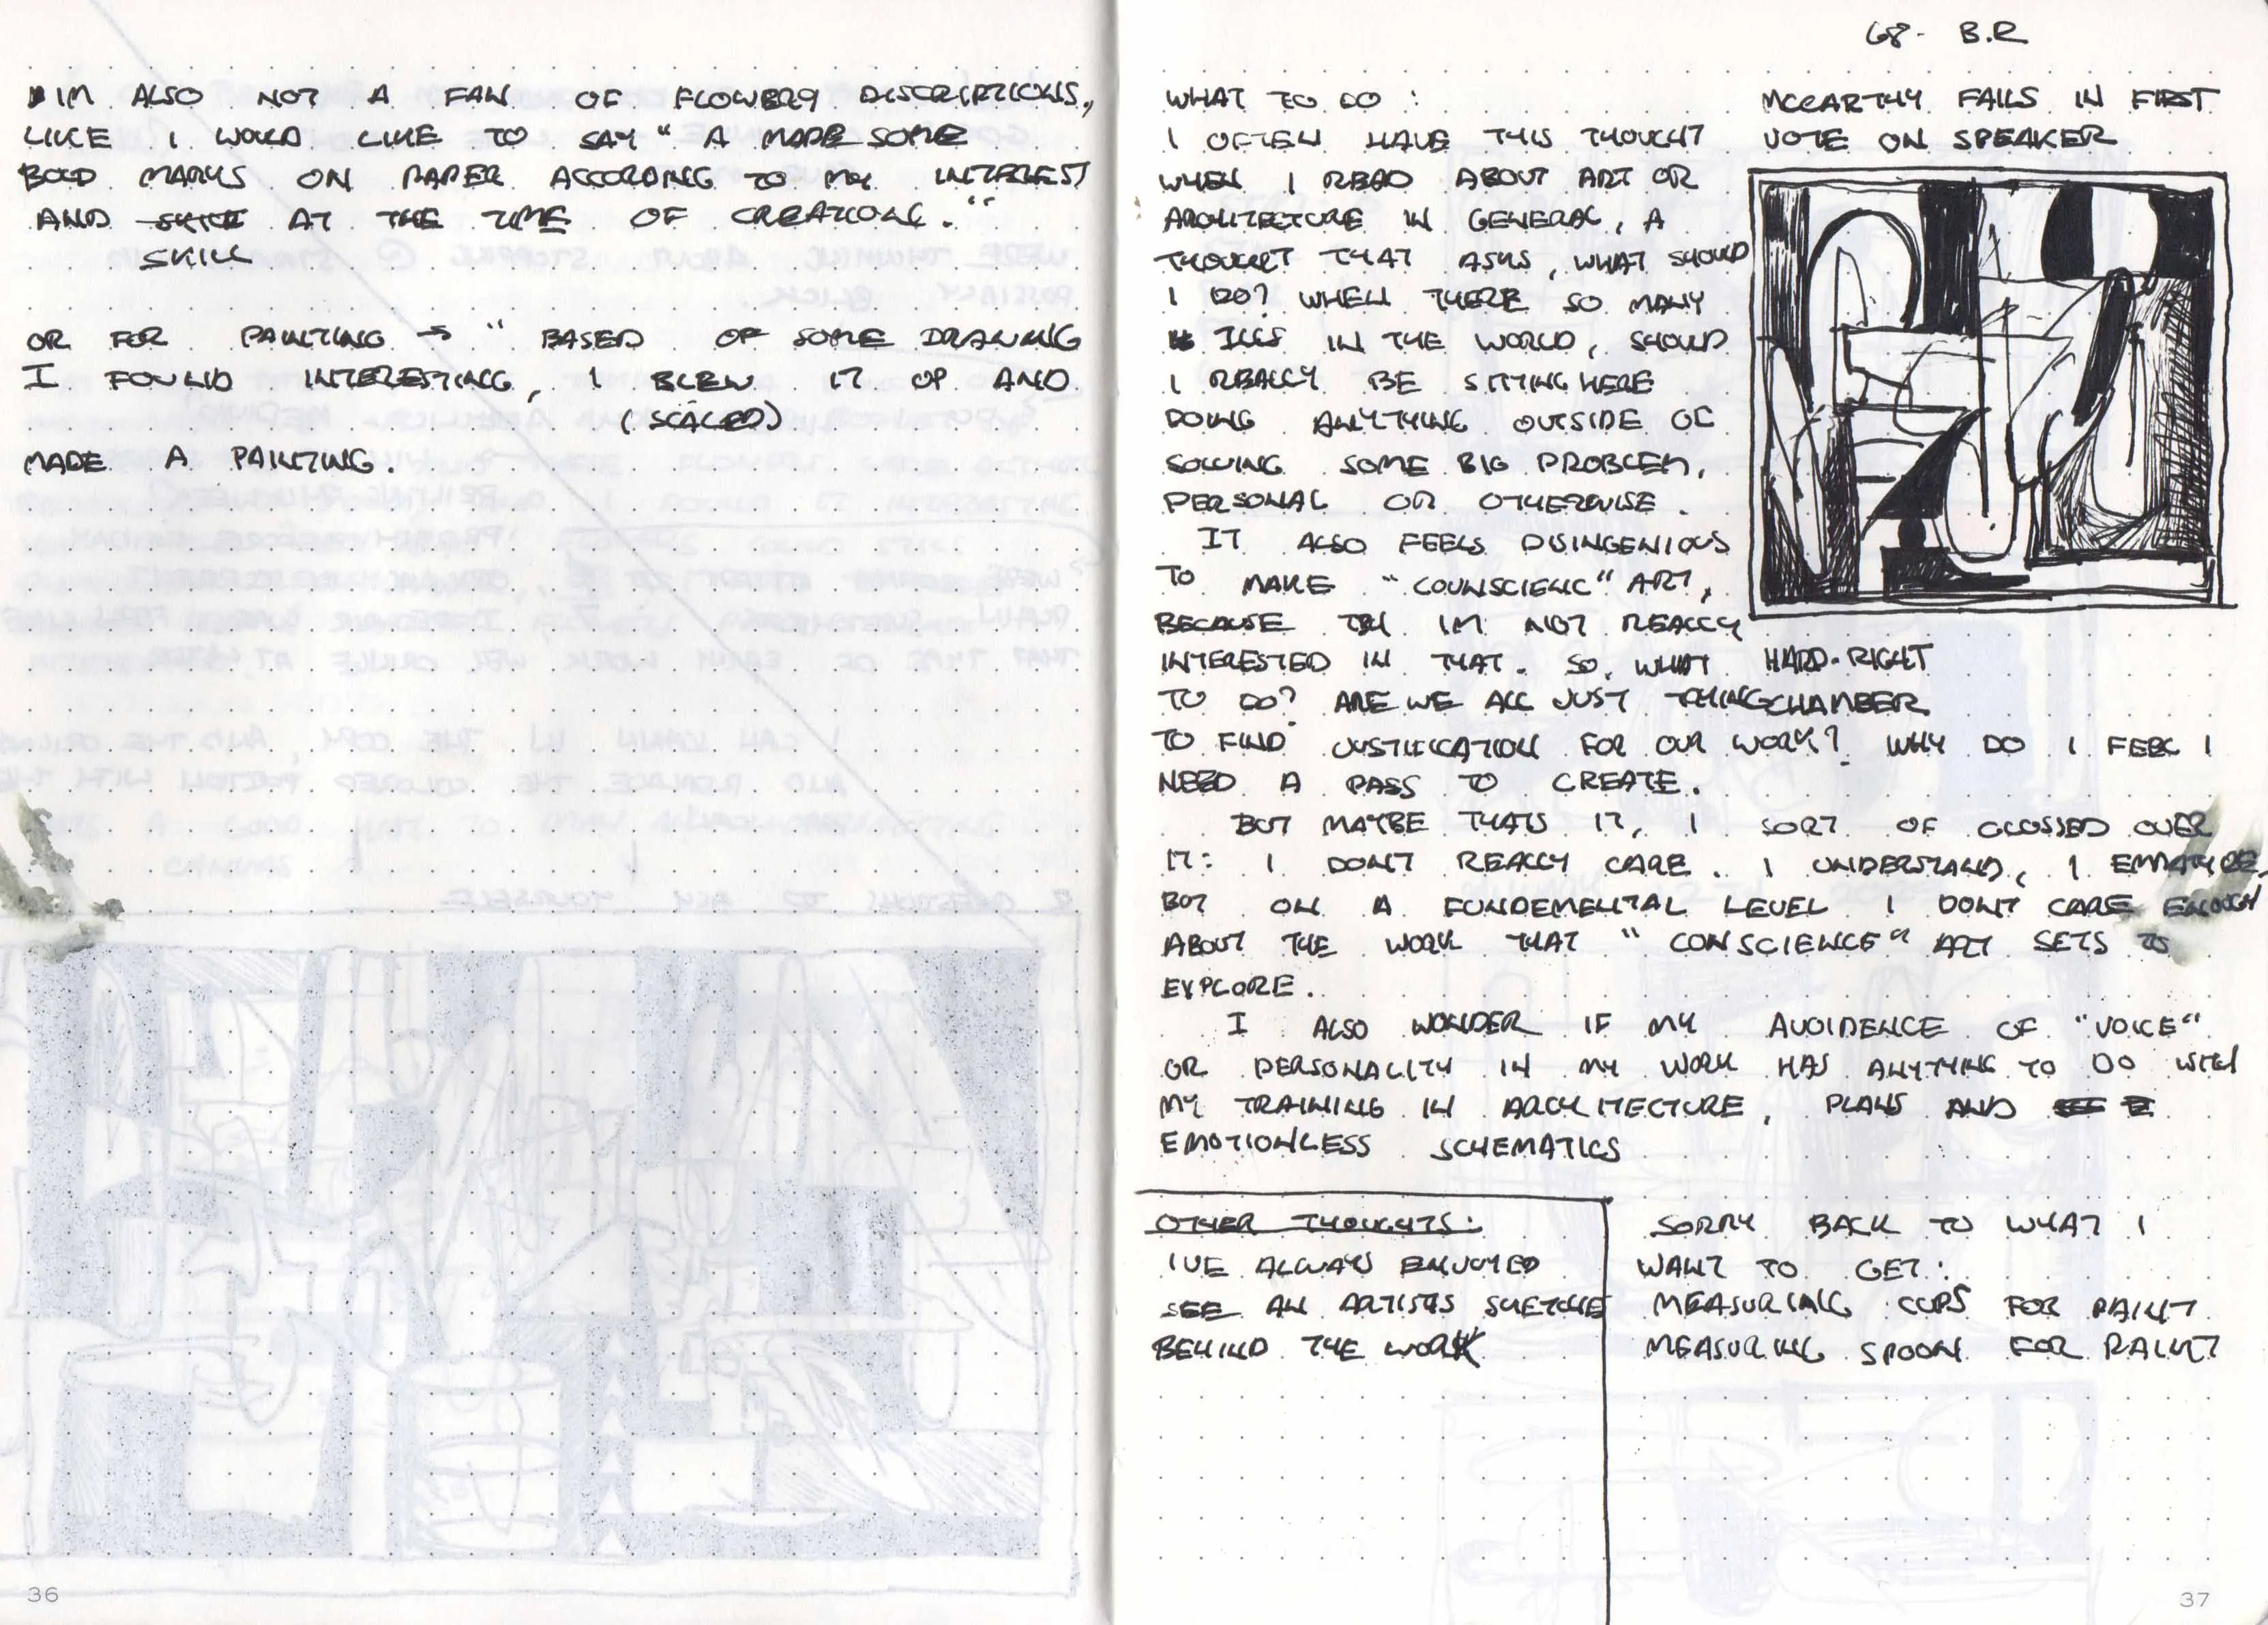 IM ALSO NOT A FAN OF FLOWERY DISCRIPTIONS,
LIKE I WOULD LIKE TO SAY "A MADE SOME
BOLD MARKS ON PAPER ACCORDING TO MY INTEREST
AND SKILL AT THE TIME OF CREATIONG."
SKILL
OR FOR PAINTING → "BASED OF SOME DRAWING
I FOUND INTERESTING, I BLEW IT UP AND
(SCALED)
MADE A PAINTING.
36
68- B.R
MCCARTHY FAILS IN FIRST
VOTE ON SPEAKER
WHAT TO DO:
I OFTEN HAVE THIS THOUGHT
WHEN I READ ABOUT ART OR
ARCHITECTURE IN GENERAL, A
THOUGHT THAT ASKS, WHAT SHOULD
I DO? WHEN THERE SO MANY
ILLS IN THE WORLD, SHOULD
I REALLY BE SITTING HERE
DOING ANYTHING OUTSIDE OF
SOLVING SOME BIG PROBLEM,
PERSONAL OR OTHERWISE.
IT ALSO FEELS DISINGENIOUS
TO MAKE "COUNSCIENC" ART,
BECAUSE TBH IM NOT REALLY
INTERESTED IN THAT. SO, WHAT
TO DO? ARE WE ALL JUST TRYING
HARD-RIGHT
CHAMBER
TO FIND JUSTIFICATION FOR OUR WORK? WHY DO I FEEL I
NEED A PASS TO CREATE.
BUT MAYBE THATS IT, I SORT OF GLOSSED OVER
IT: I DON'T REALLY CARE. I UNDERSTAND, I EMPATHIZE,
BUT ON A FUNDEMENTAL LEVEL I DONT CARE ENOUGH
ABOUT THE WORK THAT "CONSCIENCE" ART SETS TO
EXPLORE.
I ALSO WONDER IF MY AVOIDENCE OF "VOICE"
OR PERSONALITY IN MY WORK HAS ANYTHING TO DO WITH
MY TRAINING IN ARCHITECTURE, PLANS AND
EMOTIONLESS SCHEMATICS
OTHER THOUGHTS:
I'VE ALWAYS ENJOYED
SEE AN ARTISTS SKETCHE
BEHIND THE WORK
SORRY BACK TO WHAT I
WANT TO GET:
MEASURING CUPS FOR PAINT
MEASURING SPOON FOR PAINT
37